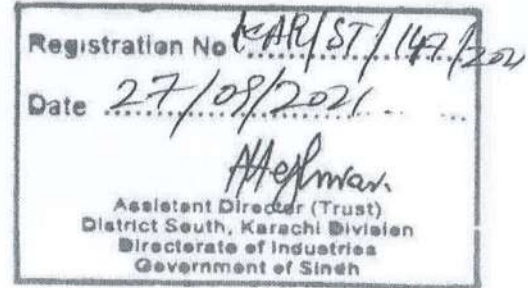 Registration No KAR/ST/147/2021
Date 27/09/2021
Assistant Director (Trust)
District South, Karachi Division
Directorate of Industries
Government of Sindh